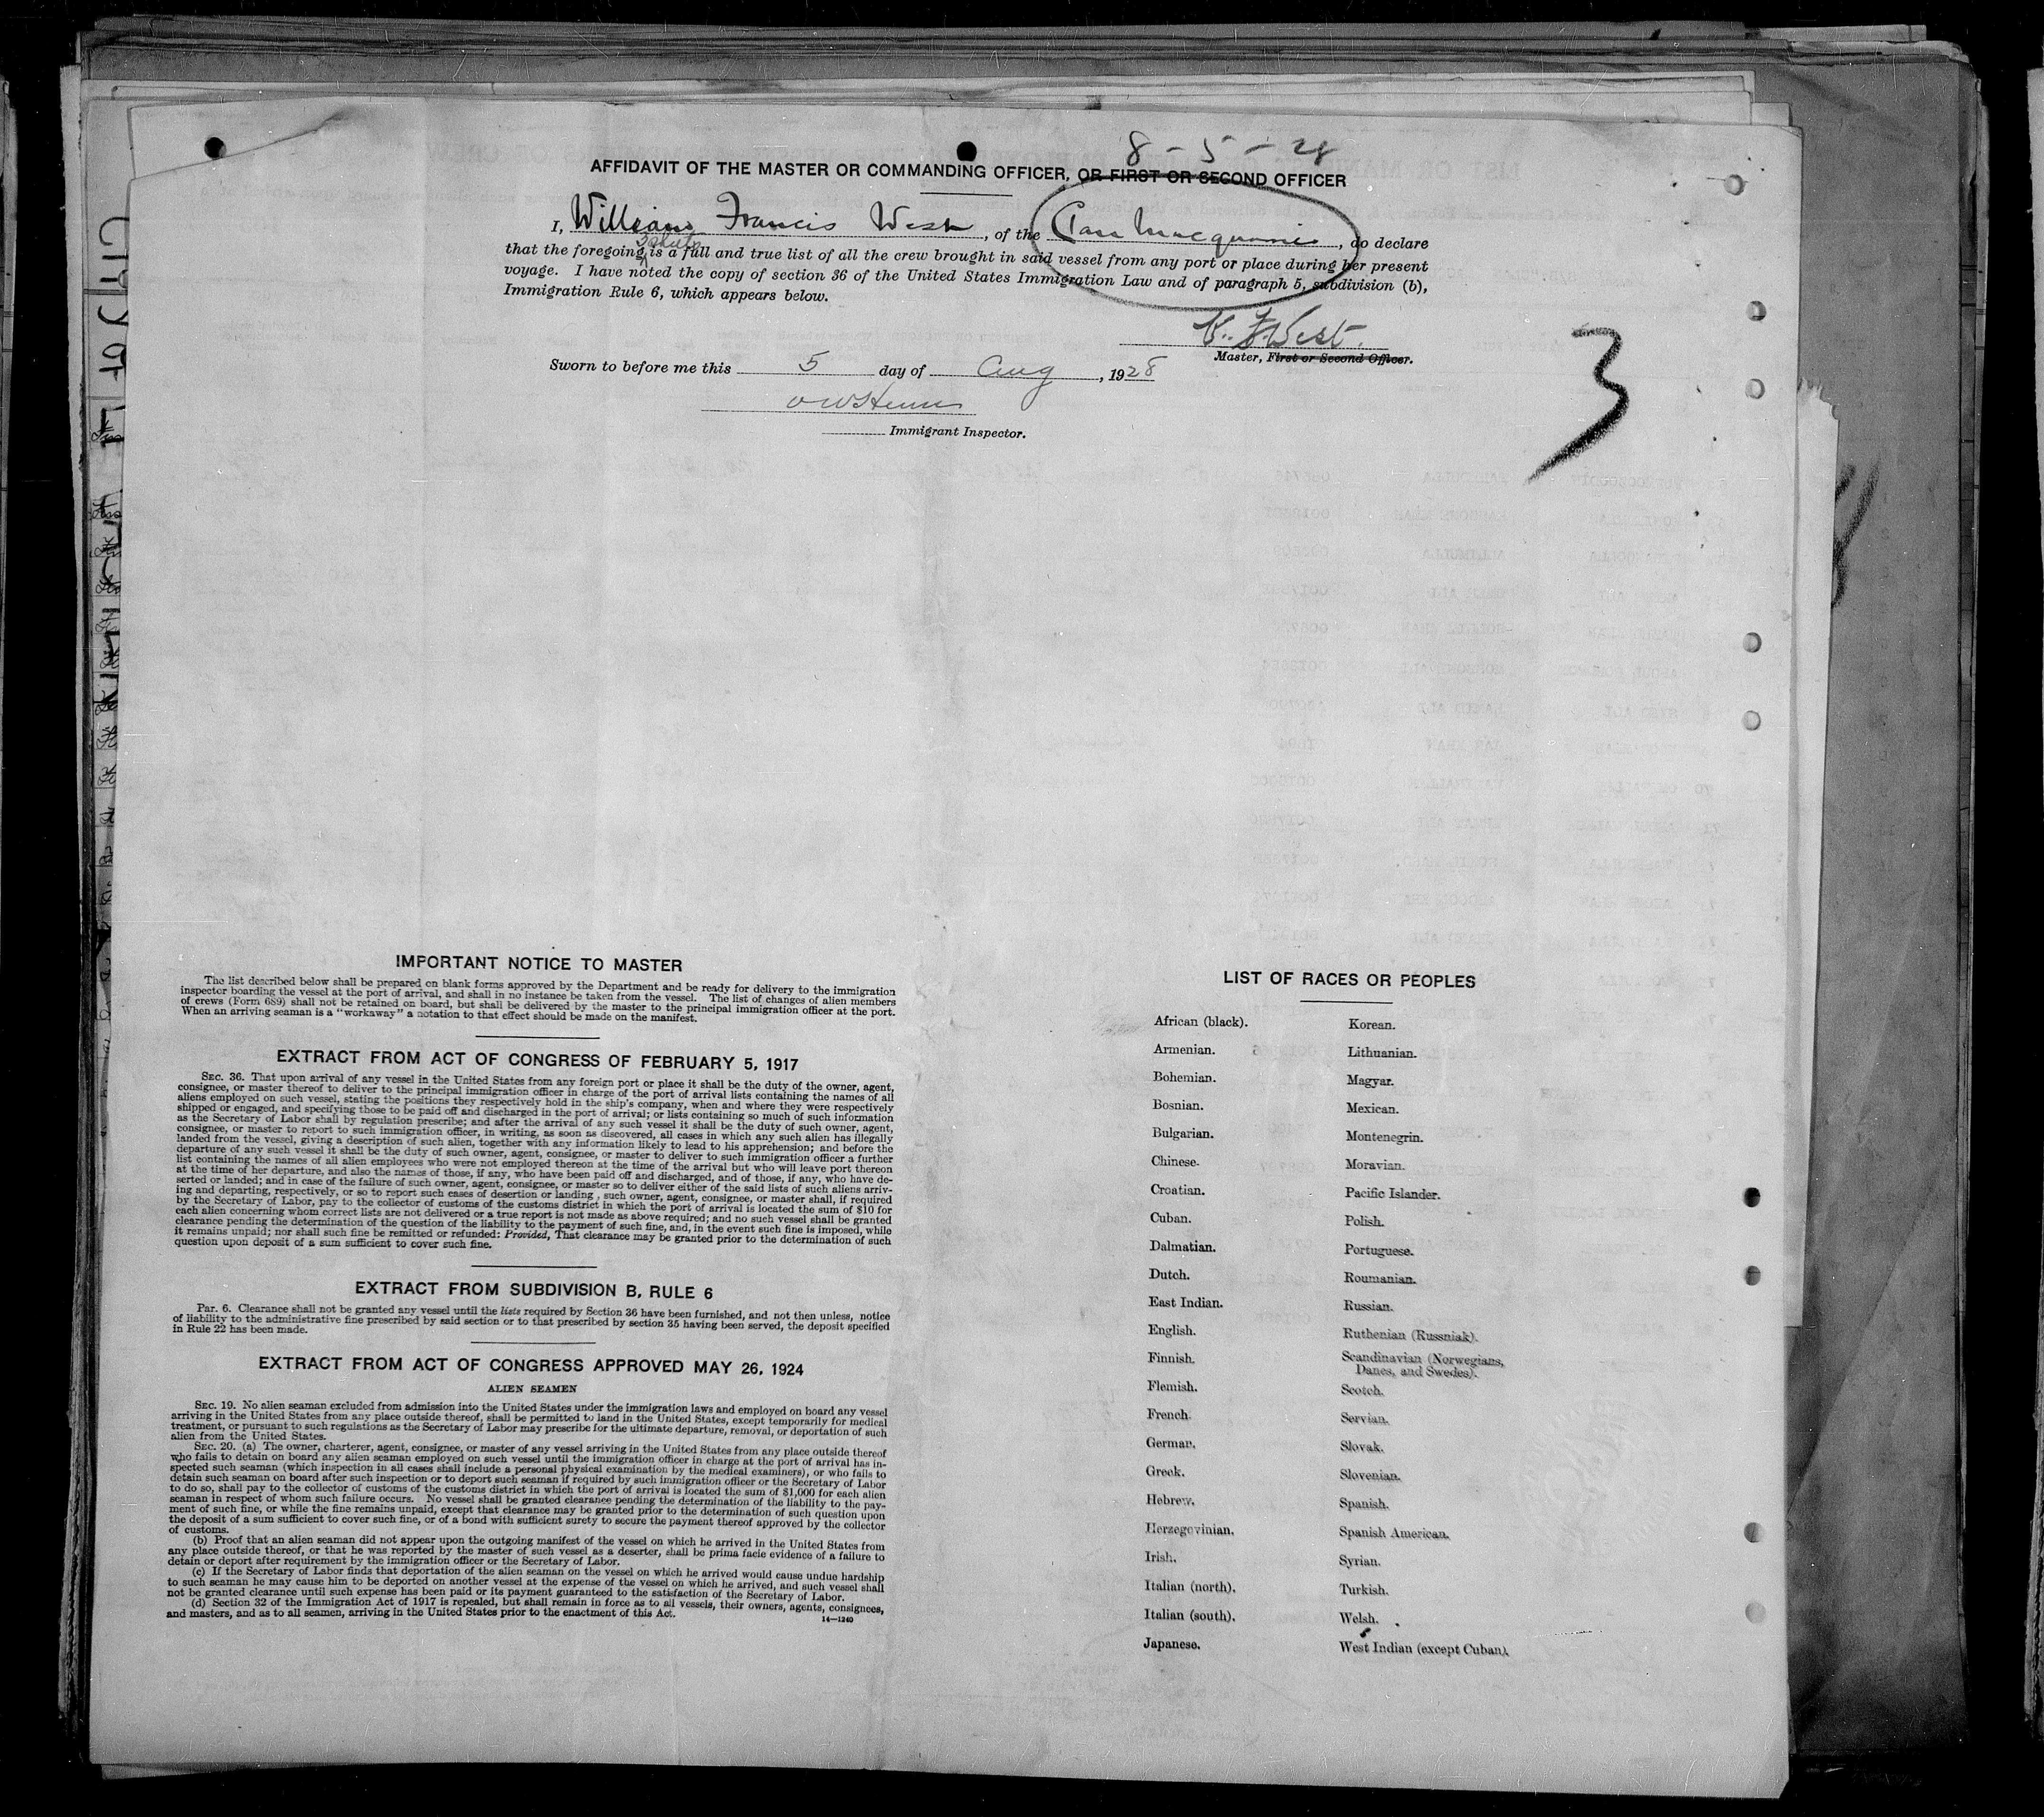 8 - 5 - 28
AFFIDAVIT OF THE MASTER OR COMMANDING OFFICER, OR FIRST OR SECOND OFFICER
I, William Francis West, of the Clan Macquarrie, do declare
that the foregoing 3 sheets is a full and true list of all the crew brought in said vessel from any port or place during her present
voyage. I have noted the copy of section 36 of the United States Immigration Law and of paragraph 5, subdivision (b),
Immigration Rule 6, which appears below.
W. F. West.
Master, First or Second Officer.
3
Sworn to before me this 5 day of Aug, 1928
Immigrant Inspector.
IMPORTANT NOTICE TO MASTER
The list described below shall be prepared on blank forms approved by the Department and be ready for delivery to the immigration
inspector boarding the vessel at the port of arrival, and shall in no instance be taken from the vessel. The list of changes of alien members
of crews (Form 689) shall not be retained on board, but shall be delivered by the master to the principal immigration officer at the port.
When an arriving seaman is a "workaway" a notation to that effect should be made on the manifest.
EXTRACT FROM ACT OF CONGRESS OF FEBRUARY 5, 1917
SEC. 36. That upon arrival of any vessel in the United States from any foreign port or place it shall be the duty of the owner, agent,
consignee, or master thereof to deliver to the principal immigration officer in charge of the port of arrival lists containing the names of all
aliens employed on such vessel, stating the positions they respectively hold in the ship's company, when and where they were respectively
shipped or engaged, and specifying those to be paid off and discharged in the port of arrival; or lists containing so much of such information
as the Secretary of Labor shall by regulation prescribe; and after the arrival of any such vessel it shall be the duty of such owner, agent,
consignee, or master to report to such immigration officer, in writing, as soon as discovered, all cases in which any such alien has illegally
landed from the vessel, giving a description of such alien, together with any information likely to lead to his apprehension; and before the
departure of any such vessel it shall be the duty of such owner, agent, consignee, or master to deliver to such immigration officer a further
list containing the names of all alien employees who were not employed thereon at the time of the arrival but who will leave port thereon
at the time of her departure, and also the names of those, if any, who have been paid off and discharged, and of those, if any, who have de-
serted or landed; and in case of the failure of such owner, agent, consignee, or master so to deliver either of the said lists of such aliens arriv-
ing and departing, respectively, or so to report such cases of desertion or landing, such owner, agent, consignee, or master shall, if required
by the Secretary of Labor, pay to the collector of customs of the customs district in which the port of arrival is located the sum of $10 for
each alien concerning whom correct lists are not delivered or a true report is not made as above required; and no such vessel shall be granted
clearance pending the determination of the question of the liability to the payment of such fine, and, in the event such fine is imposed, while
it remains unpaid; nor shall such fine be remitted or refunded: Provided, That clearance may be granted prior to the determination of such
question upon deposit of a sum sufficient to cover such fine.
EXTRACT FROM SUBDIVISION B, RULE 6
Par. 6. Clearance shall not be granted any vessel until the lists required by Section 36 have been furnished, and not then unless, notice
of liability to the administrative fine prescribed by said section or to that prescribed by section 35 having been served, the deposit specified
in Rule 22 has been made.
EXTRACT FROM ACT OF CONGRESS APPROVED MAY 26, 1924
ALIEN SEAMEN
SEC. 19. No alien seaman excluded from admission into the United States under the immigration laws and employed on board any vessel
arriving in the United States from any place outside thereof, shall be permitted to land in the United States, except temporarily for medical
treatment, or pursuant to such regulations as the Secretary of Labor may prescribe for the ultimate departure, removal, or deportation of such
alien from the United States.
SEC. 20. (a) The owner, charterer, agent, consignee, or master of any vessel arriving in the United States from any place outside thereof
who fails to detain on board any alien seaman employed on such vessel until the immigration officer in charge at the port of arrival has in-
spected such seaman (which inspection in all cases shall include a personal physical examination by the medical examiners), or who fails to
detain such seaman on board after such inspection or to deport such seaman if required by such immigration officer or the Secretary of Labor
to do so, shall pay to the collector of customs of the customs district in which the port of arrival is located the sum of $1,000 for each alien
seaman in respect of whom such failure occurs. No vessel shall be granted clearance pending the determination of the liability to the pay-
ment of such fine, or while the fine remains unpaid, except that clearance may be granted prior to the determination of such question upon
the deposit of a sum sufficient to cover such fine, or of a bond with sufficient surety to secure the payment thereof approved by the collector
of customs.
(b) Proof that an alien seaman did not appear upon the outgoing manifest of the vessel on which he arrived in the United States from
any place outside thereof, or that he was reported by the master of such vessel as a deserter, shall be prima facie evidence of a failure to
detain or deport after requirement by the immigration officer or the Secretary of Labor.
(c) If the Secretary of Labor finds that deportation of the alien seaman on the vessel on which he arrived would cause undue hardship
to such seaman he may cause him to be deported on another vessel at the expense of the vessel on which he arrived, and such vessel shall
not be granted clearance until such expense has been paid or its payment guaranteed to the satisfaction of the Secretary of Labor.
(d) Section 32 of the Immigration Act of 1917 is repealed, but shall remain in force as to all vessels, their owners, agents, consignees,
and masters, and as to all seamen, arriving in the United States prior to the enactment of this Act.
14—1240
LIST OF RACES OR PEOPLES
African (black).
Armenian.
Bohemian.
Bosnian.
Bulgarian.
Chinese.
Croatian.
Cuban.
Dalmatian.
Dutch.
East Indian.
English.
Finnish.
Flemish.
French.
German.
Greek.
Hebrew.
Herzegovinian.
Irish.
Italian (north).
Italian (south).
Japanese.
Korean.
Lithuanian.
Magyar.
Mexican.
Montenegrin.
Moravian.
Pacific Islander.
Polish.
Portuguese.
Roumanian.
Russian.
Ruthenian (Russniak).
Scandinavian (Norwegians,
Danes, and Swedes).
Scotch.
Servian.
Slovak.
Slovenian.
Spanish.
Spanish American.
Syrian.
Turkish.
Welsh.
West Indian (except Cuban).